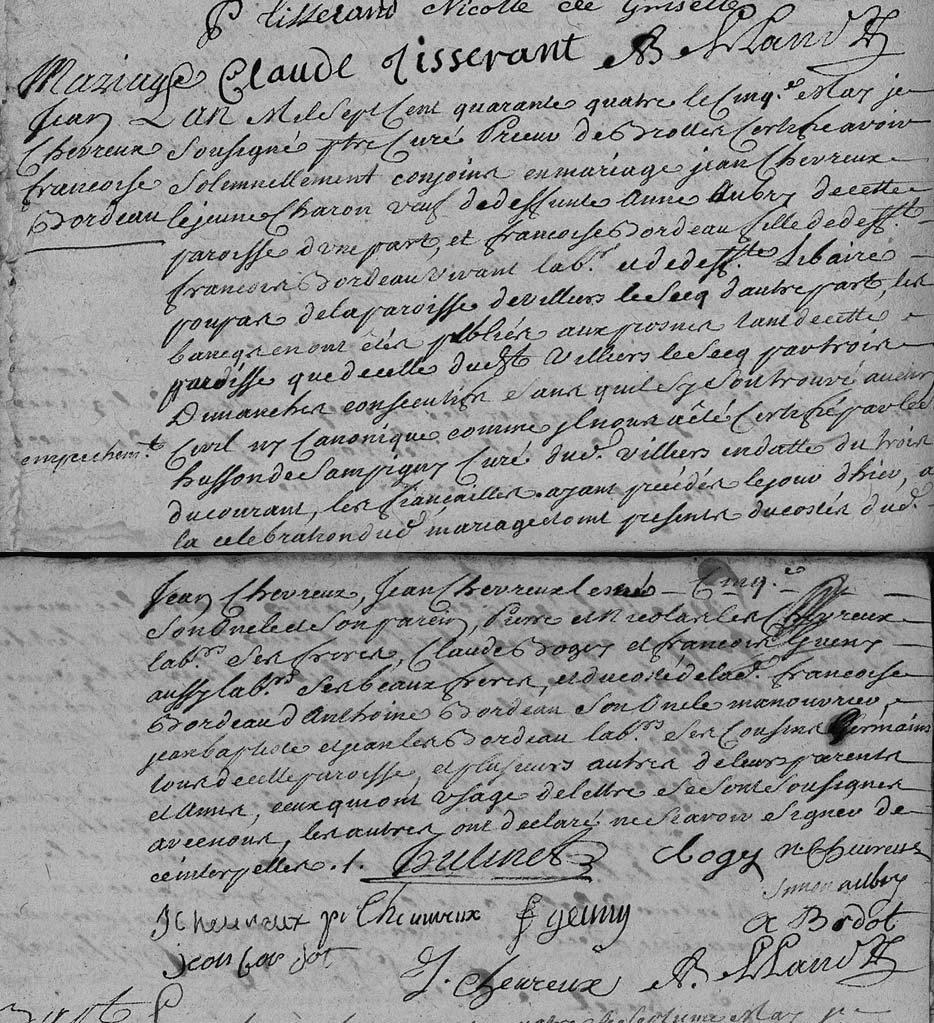 P tisserand Nicolle de Griselle
Mariage Claude Tisserant AB Alland
Jean L'an Mil Sept Cent quarante quatre le Cinq.e May je
Chevreux Sousigné ptre Curé Prieur de Brottes Certifie avoir
francoise Solemnellement conjoint en mariage jean Chevreux
Bordeau lejeune Charon veuf de deffunte Anne Aubry de cette
paroisse d'une part, et francoise Bordeau fille de deff.t
francois Bordeau vivant lab.r et de deff.te Libaire
poupar de la paroisse de villiers le Secq d'autre part, les
bancqs en ont étés publiés aux prosnes tant de cette
paroisse que de celle dudt Villiers le Secq par trois
Dimanches consecutifs sans quil sy soit trouvé aucun
empechem.t Civil ny Canonique comme jl nous a été Certifié par le S.r
husson de Sampigny Curé dud. Villiers en datte du trois
du courant, les fiançailles ayant précédés le jour d'hier, a
la célébration dud. mariage sont presents du costés dud.
Jean Chevreux, Jean Chevreux le Cinq.e
Son Oncle et Son parein, Pierre et Nicolas les Chevreux
lab.rs Ses freres, Claude Dogey et francois Gueny
aussy lab.rs Ses beaux freres, et du costé de lad. francoise
Bordeau d'Anthoine Bordeau Son Oncle manouvrier,
jean baptiste et jean les Bordeau lab.rs Ses Cousins Germains
tous de cette paroisse, et plusieurs autres de leurs parents
et Amis, ceux qui ont usage de lettre Se Sont Sousignés
avec nous, les autres ont declaré ne scavoir Signer de
ce interpellés. /. C dogey N Cheureux
Simon aubry
J cheureaux pi Cheureux f geuny A Bordot
jean bordot
J. Cheureux AB Alland